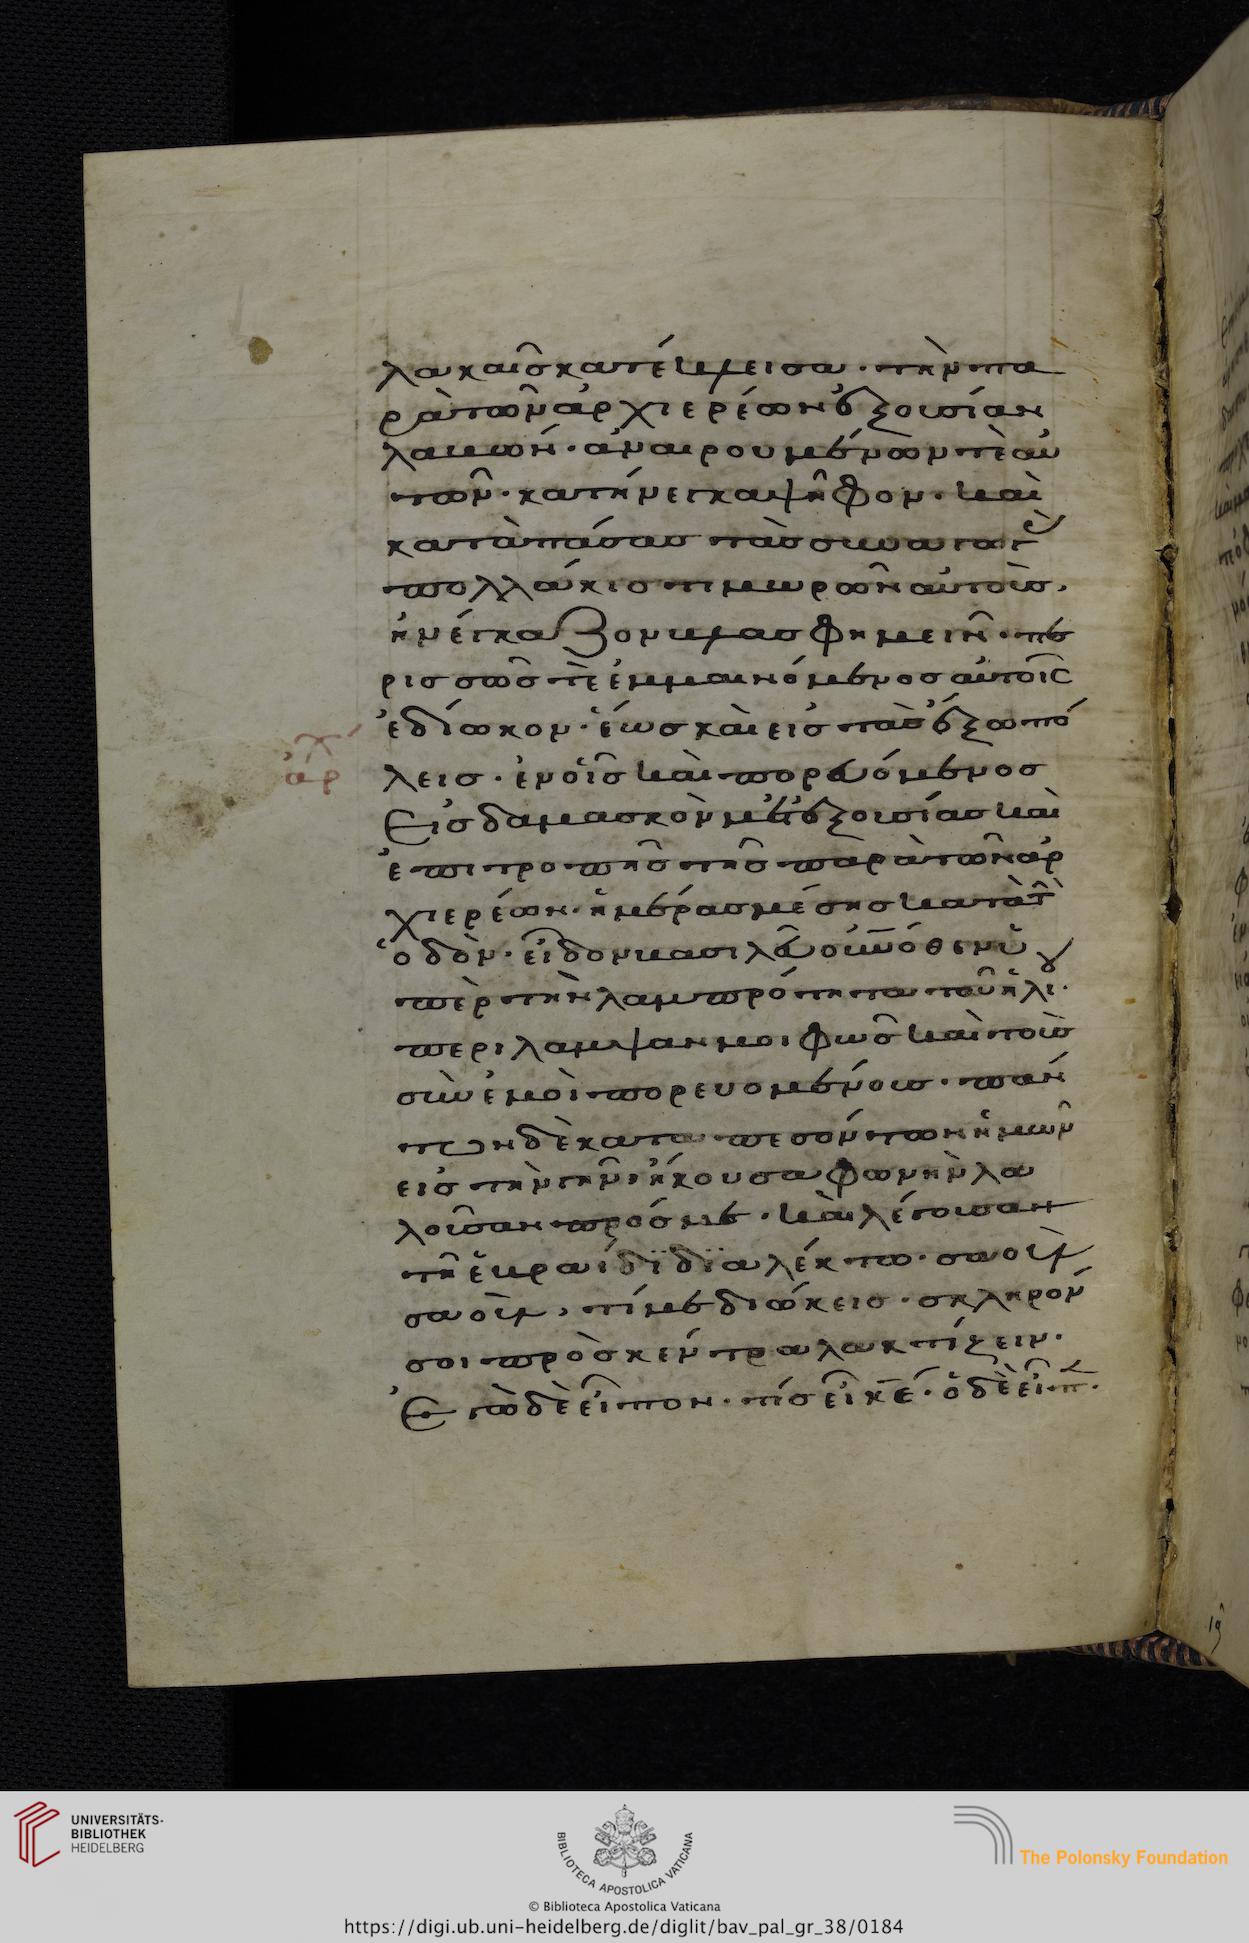 λακαῖς κατέκλεισα· τὴν πα
ρὰ τῶν ἀρχιερέων ἐξουσίαν
λαβών· ἀναιρουμένων τὲ αὐ
τῶν· κατήνεγκα ψῆφον· καὶ
κατὰ πάσας τὰς συναγωγὰς
πολλάκις τιμωρῶν αὐτοὺς,
ἠνάγκαζον βλασφημεῖν· πε
ρισσῶς τὲ ἐμμαινόμενος αὐτοῖς
ἐδίωκον· ἕως καὶ εἰς τὰς ἔξω πό
ἀρχ
λεις· ἐν οἷς καὶ πορευόμενος
Εἰς δαμασκὸν μετ' ἐξουσίας καὶ
ἐπιτροπῆς τῆς παρὰ τῶν ἀρ
χιερέων· ἡμέρας μέσης κατὰ τὴν
ὁδὸν· εἶδον βασιλεῦ οὐνόθεν ὑ
πὲρ τὴν λαμπρότητα τοῦ ἡλίου
περιλαμψαν μοι φῶς καὶ τοὺς
σὺν ἐμοὶ πορευομένους· πάν
των δὲ καταπεσόντων ἡμῶν
εἰς τὴν γῆν, ἤκουσα φωνὴν λα
λοῦσαν πρός με· καὶ λέγουσαν
τῆ ἑβραΐδϊ δϊαλέκτω· σαοὺλ
σαοὺλ, τί με διώκεις· σκληρόν
σοι πρὸς κέντρα λακτίζειν·
Ἐγὼ δὲ εἶπον· τίς εἶ κε· ὁ δὲ εἶπ·
UNIVERSITÄTS-
BIBLIOTHEK
HEIDELBERG
BIBLIOTECA APOSTOLICA VATICANA
The Polonsky Foundation
© Biblioteca Apostolica Vaticana
https://digi.ub.uni-heidelberg.de/diglit/bav_pal_gr_38/0184